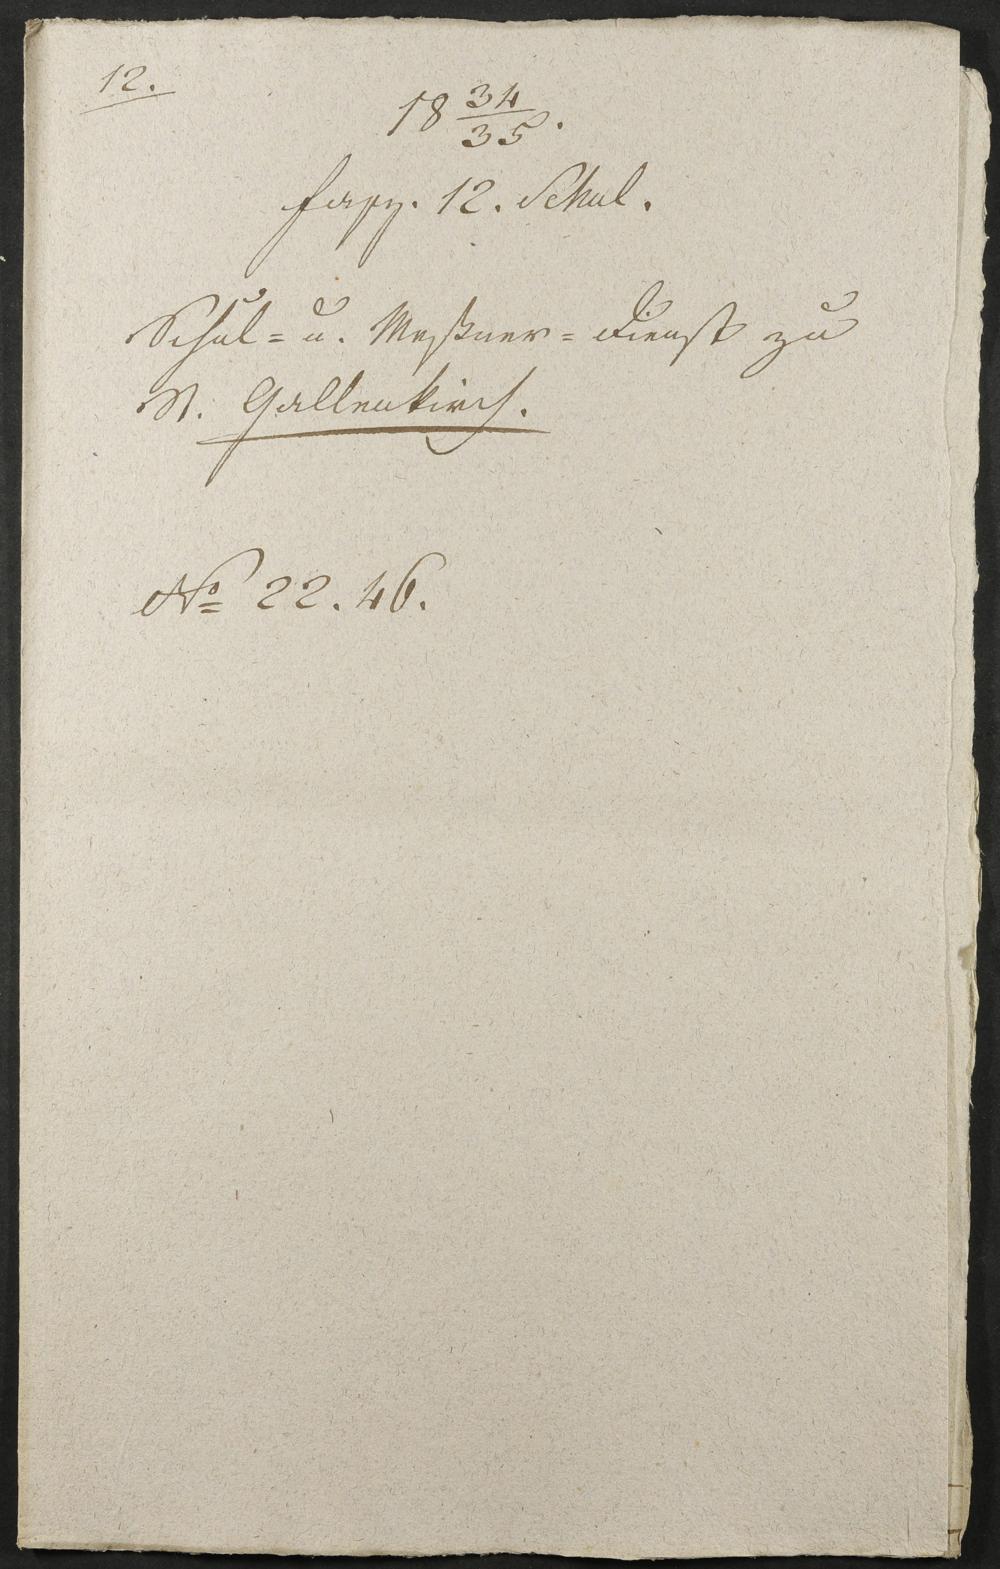 12.
18 34/35.
Fasz. 12. Schul.
Schul= u. Meßner=Dienst zu
St. Gallenkirch.
No 22. 46.